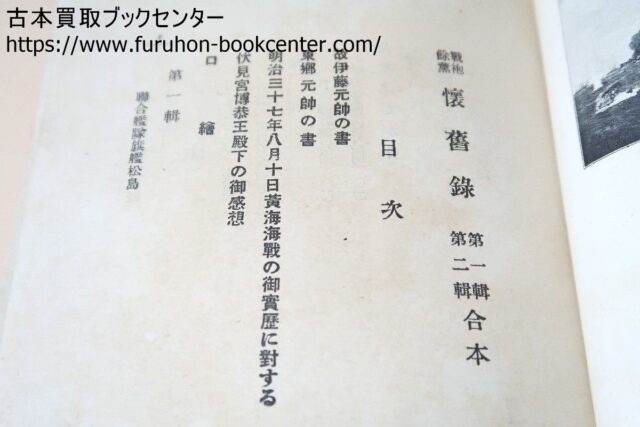 古本買取ブックセンター
https://www.furuhon-bookcenter.com/
戰袍餘薰 懷舊錄 第一輯第二輯合本
目次
故伊藤元帥の書
東鄉元帥の書
明治三十七年八月十日黃海海戰の御實歷に對する
伏見宮博恭王殿下の御感想
口繪
第一輯
聯合艦隊旗艦松島